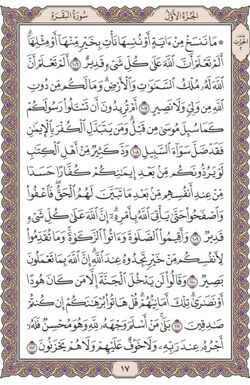 الجزء الأول سورة البقرة
۞ مَا نَنسَخْ مِنْ ءَايَةٍ أَوْ نُنسِهَا نَأْتِ بِخَيْرٍ مِّنْهَآ أَوْ مِثْلِهَآ
أَلَمْ تَعْلَمْ أَنَّ ٱللَّهَ عَلَىٰ كُلِّ شَىْءٍ قَدِيرٌ ١٠٦ أَلَمْ تَعْلَمْ أَنَّ
ٱللَّهَ لَهُۥ مُلْكُ ٱلسَّمَٰوَٰتِ وَٱلْأَرْضِ وَمَا لَكُم مِّن دُونِ
ٱللَّهِ مِن وَلِىٍّ وَلَا نَصِيرٍ ١٠٧ أَمْ تُرِيدُونَ أَن تَسْـَٔلُوا۟ رَسُولَكُمْ
كَمَا سُئِلَ مُوسَىٰ مِن قَبْلُ وَمَن يَتَبَدَّلِ ٱلْكُفْرَ بِٱلْإِيمَٰنِ
فَقَدْ ضَلَّ سَوَآءَ ٱلسَّبِيلِ ١٠٨ وَدَّ كَثِيرٌ مِّنْ أَهْلِ ٱلْكِتَٰبِ
لَوْ يَرُدُّونَكُم مِّنۢ بَعْدِ إِيمَٰنِكُمْ كُفَّارًا حَسَدًا
مِّنْ عِندِ أَنفُسِهِم مِّنۢ بَعْدِ مَا تَبَيَّنَ لَهُمُ ٱلْحَقُّ فَٱعْفُوا۟
وَٱصْفَحُوا۟ حَتَّىٰ يَأْتِىَ ٱللَّهُ بِأَمْرِهِۦٓ إِنَّ ٱللَّهَ عَلَىٰ كُلِّ شَىْءٍ
قَدِيرٌ ١٠٩ وَأَقِيمُوا۟ ٱلصَّلَوٰةَ وَءَاتُوا۟ ٱلزَّكَوٰةَ وَمَا تُقَدِّمُوا۟
لِأَنفُسِكُم مِّنْ خَيْرٍ تَجِدُوهُ عِندَ ٱللَّهِ إِنَّ ٱللَّهَ بِمَا تَعْمَلُونَ
بَصِيرٌ ١١٠ وَقَالُوا۟ لَن يَدْخُلَ ٱلْجَنَّةَ إِلَّا مَن كَانَ هُودًا
أَوْ نَصَٰرَىٰ تِلْكَ أَمَانِيُّهُمْ قُلْ هَاتُوا۟ بُرْهَٰنَكُمْ إِن كُنتُمْ
صَٰدِقِينَ ١١١ بَلَىٰ مَنْ أَسْلَمَ وَجْهَهُۥ لِلَّهِ وَهُوَ مُحْسِنٌ فَلَهُۥٓ
أَجْرُهُۥ عِندَ رَبِّهِۦ وَلَا خَوْفٌ عَلَيْهِمْ وَلَا هُمْ يَحْزَنُونَ ١١٢
١٧